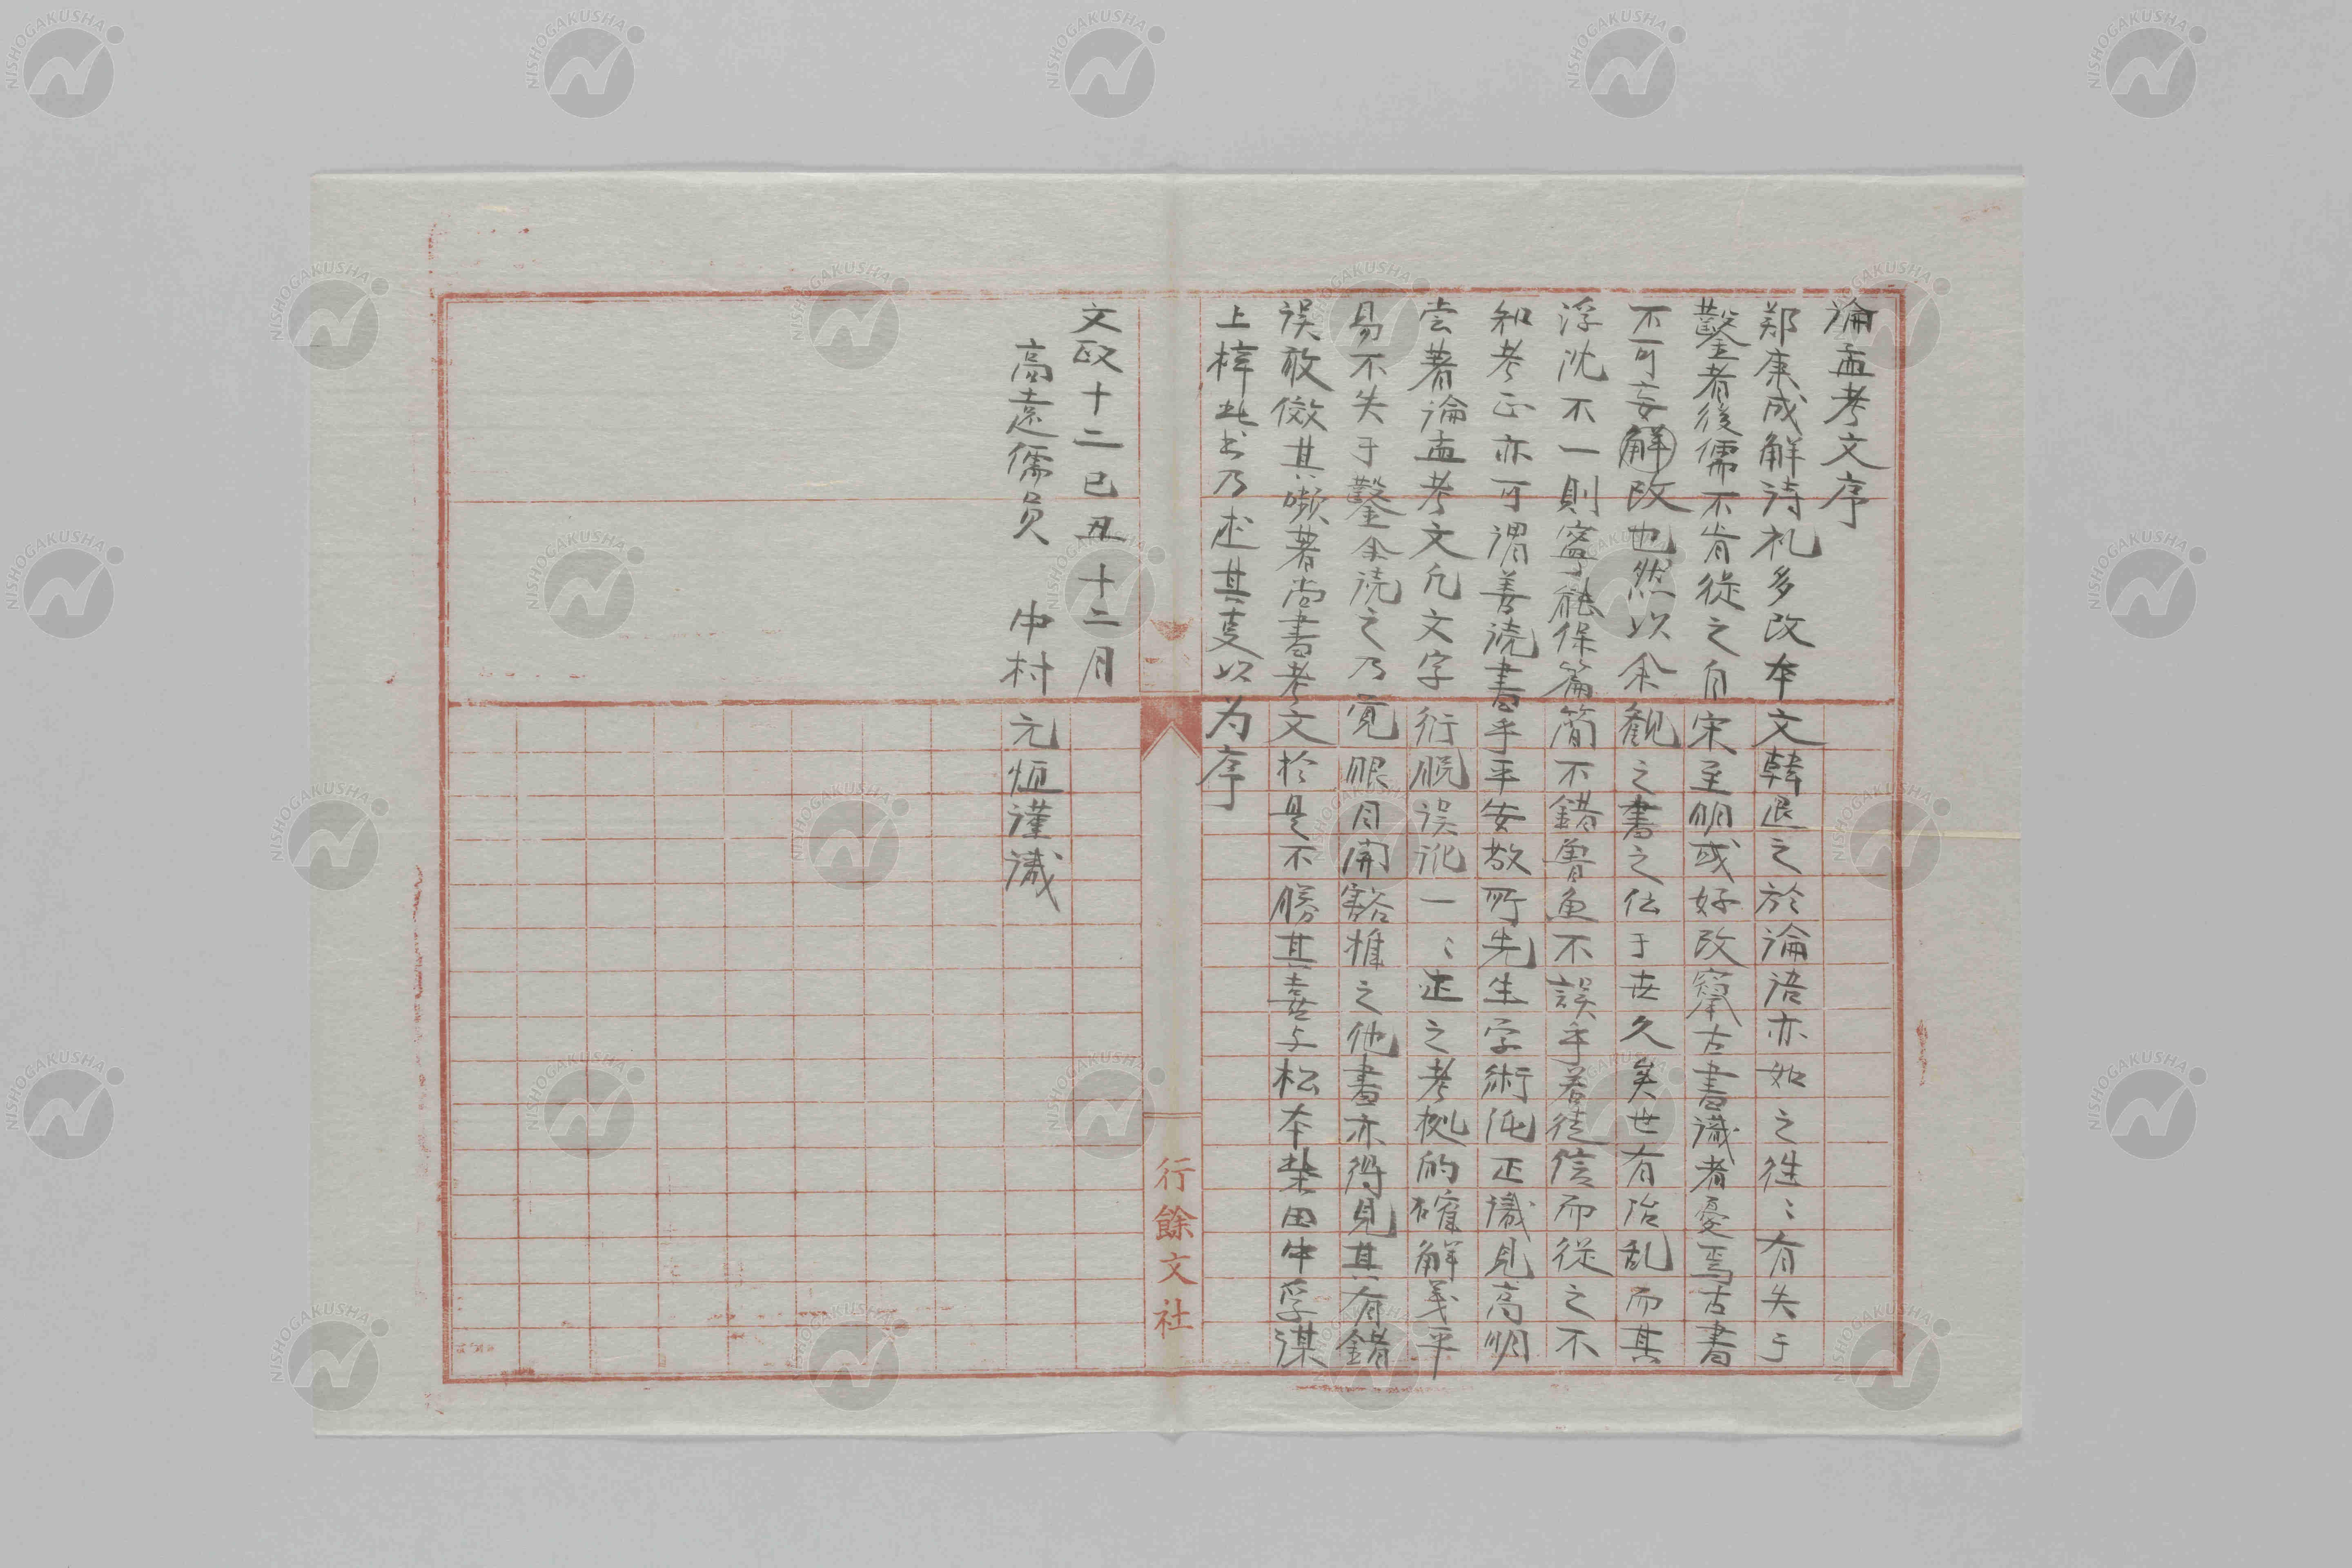 論孟考文序
鄭康成解詩礼多改本文韓退之於論語亦如之往〻有失于
鑿者後儒不肯従之自宋至明或好改竄古書識者憂焉古書
不可妄解改也然以余観之書之伝于世久矣世有治乱而其
浮沈不一則寧能保篇簡不錯魯魚不誤乎若徒信而従之不
知考正亦可謂善読書乎平安敬所先生学術純正識見高明
尝著論孟考文凡文字衍脱誤訛一〻正之考拠的確解義平
易不失于鑿余読之乃寛眼目開豁推之他書亦得見其有錯
誤敢傚其嚬著尚書考文於是不勝其喜与松本柴田中孚謀
上梓此书乃述其事以为序
文政十二己丑十二月
高遠儒員 中村元恒謹識
行餘文社
NISHOGAKUSHA